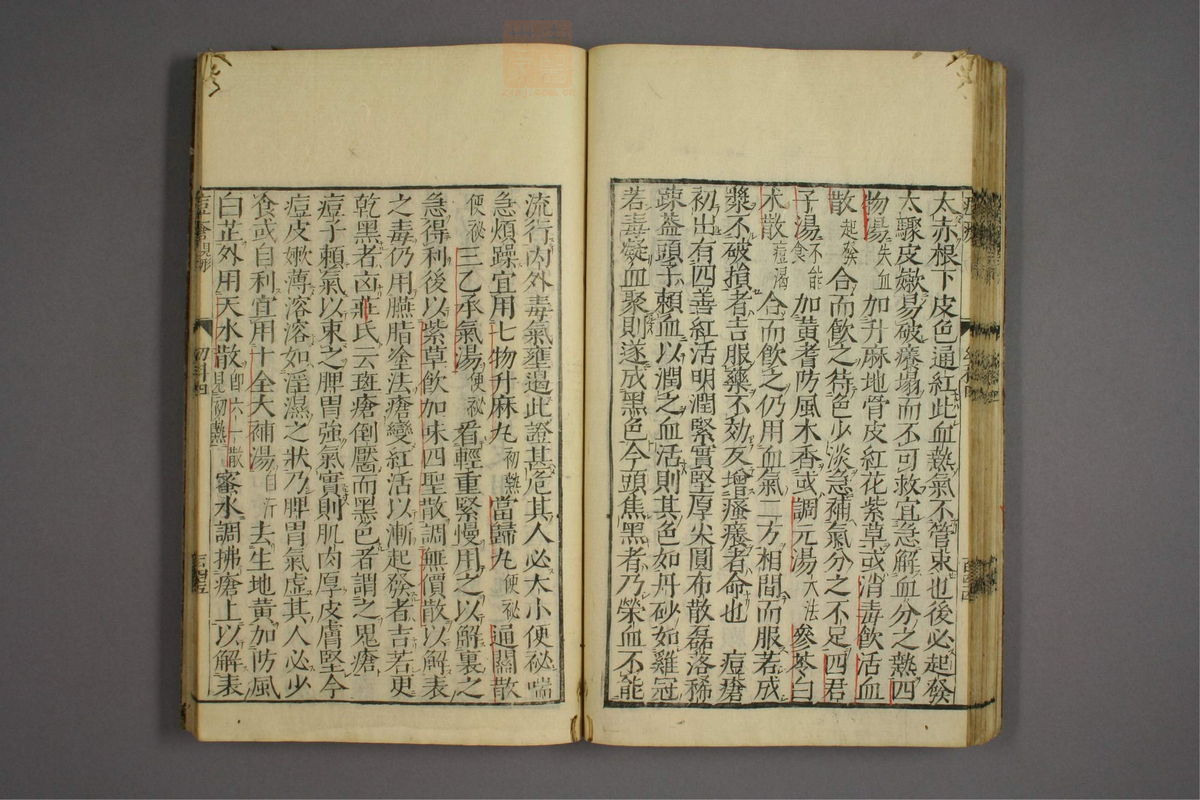 太赤根下皮色通紅此血熱氣不管束也後必起發
太驟皮嫩易破癢塌而不可救宜急解血分之熱四
物湯失血加升麻地骨皮紅花紫草或消毒飲活血
散起發合而飲之待色少淡急補氣分之不足四君
子湯不能食加黃耆防風木香或調元湯大法參苓白
朮散痘渴合而飲之仍用血氣二方相間而服若成
漿不破損者吉服藥不効反增瘙癢者命也 痘瘡
初出有四善紅活明潤緊實堅厚尖圓布散磊落稀
踈蓋頭子賴血以潤之血活則其色如丹砂如雞冠
若毒凝血聚則遂成黑色今頭焦黑者乃榮血不能
流行內外毒氣壅遏此證甚危其人必大小便祕喘
急煩躁宜用七物升麻丸初熱當歸丸便祕通關散
便祕三乙承氣湯便祕看輕重緊慢用之以解裏之
急得利後以紫草飲加味四聖散調無價散以解表
之毒仍用臙脂塗法瘡變紅活以漸起發者吉若更
乾黑者凶龐氏云斑瘡倒靨而黑色者謂之鬼瘡
痘子賴氣以束之脾胃強氣實則肌肉厚皮膚堅今
痘皮嫩薄溶溶如淫濕之狀乃脾胃氣虛其人必少
食或自利宜用十全大補湯自汗去生地黃加防風
白芷外用天水散即六一散見初熱蜜水調拂瘡上以解表